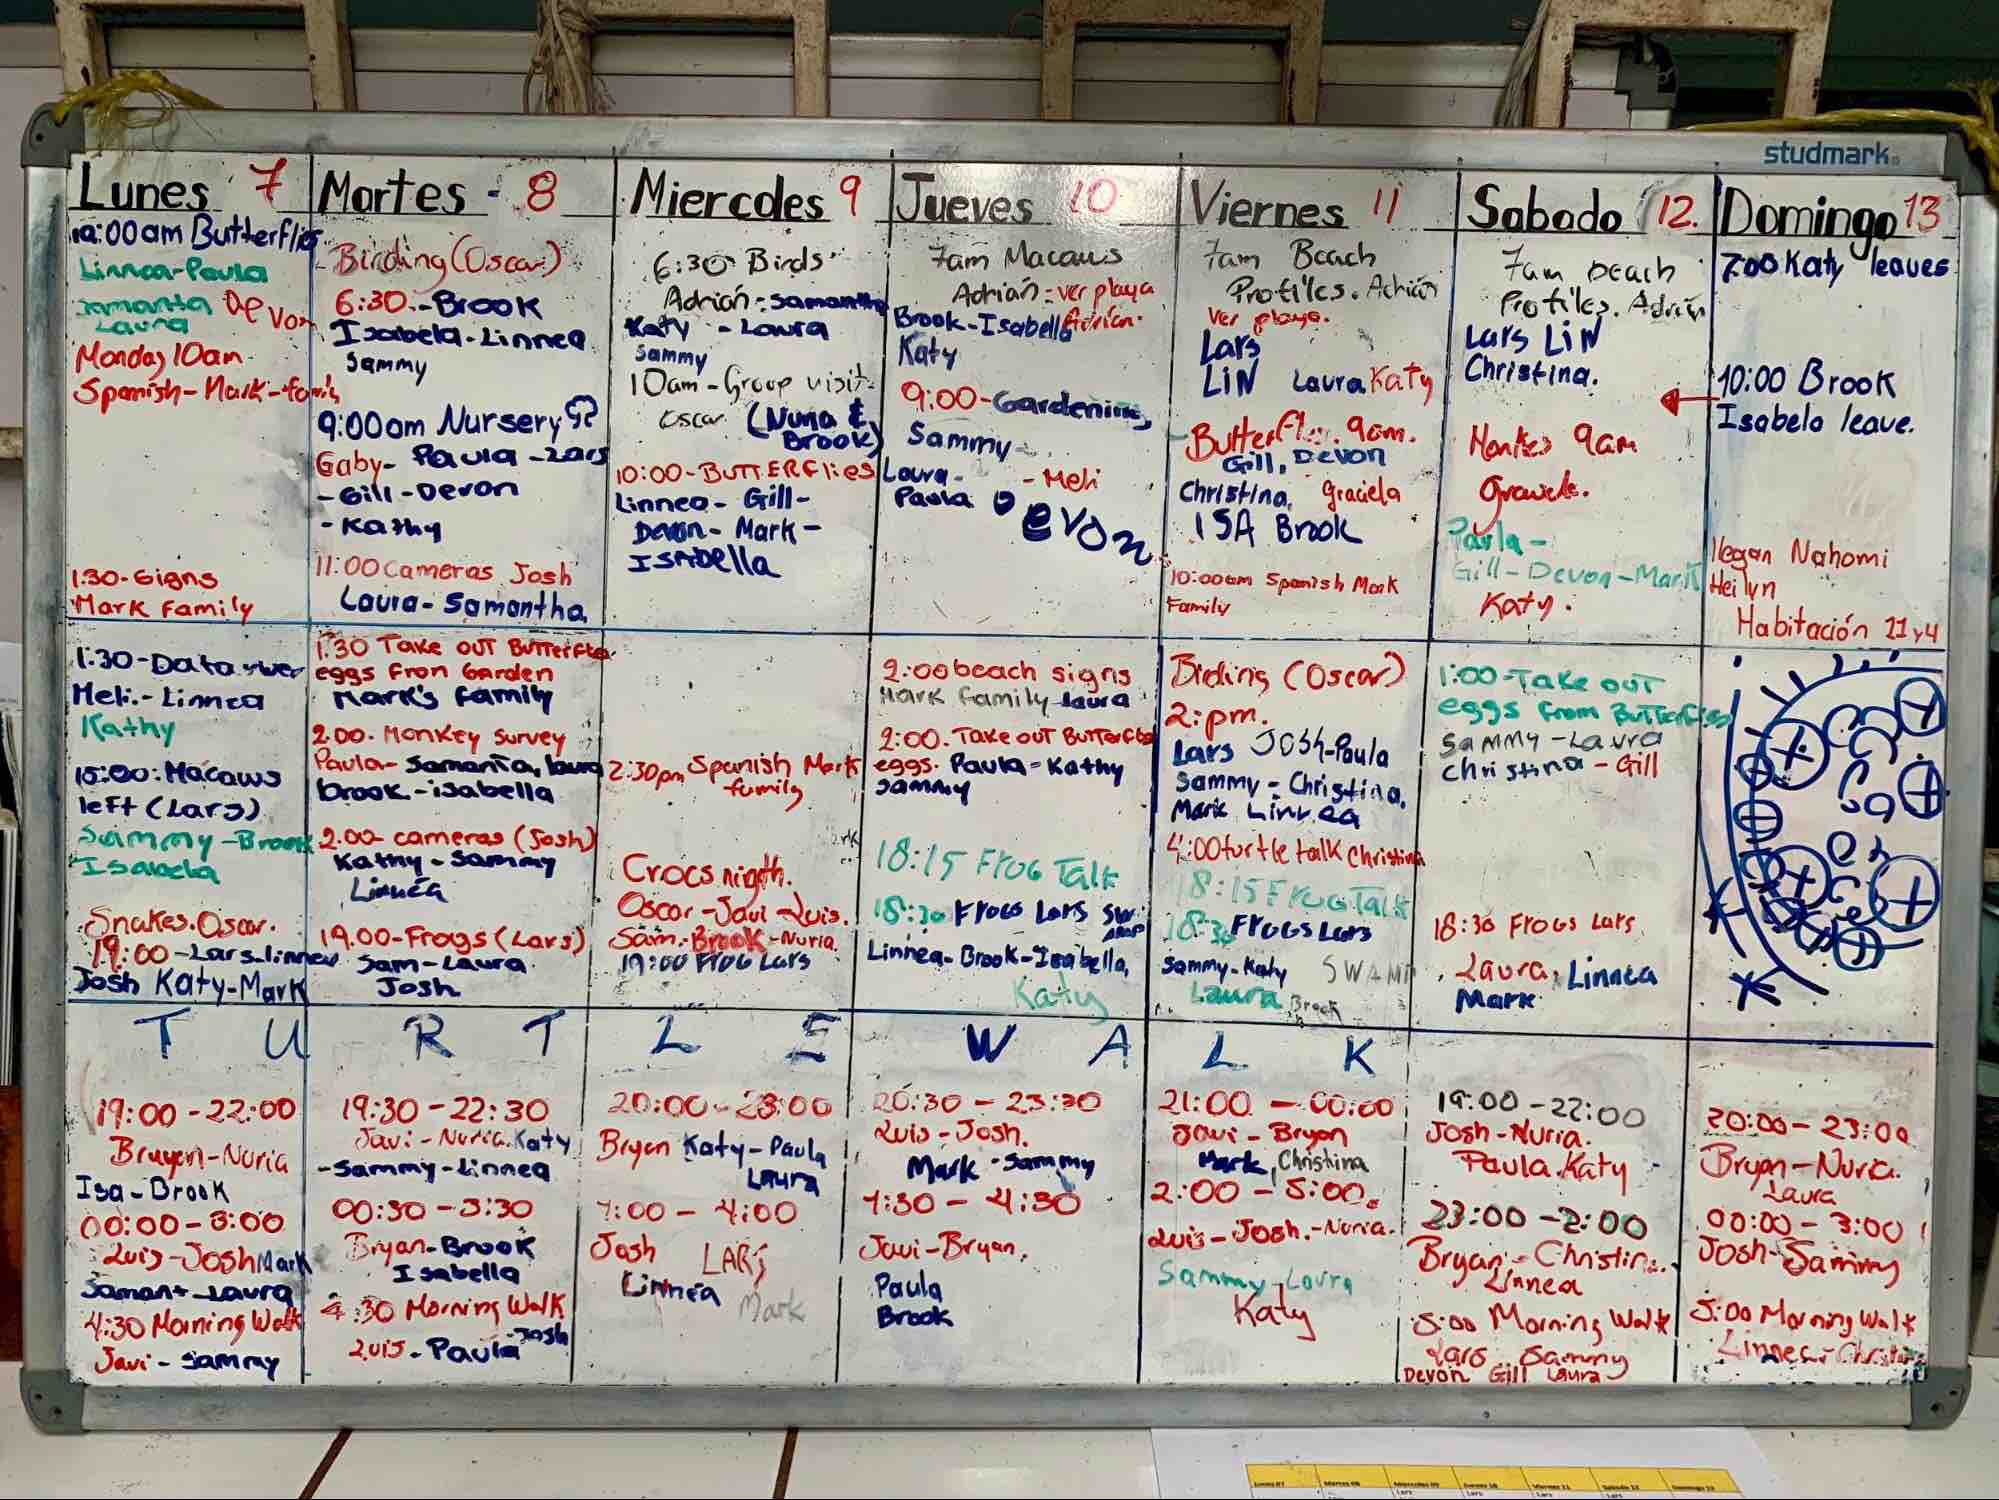 studmark
Lunes 7
10:00am Butterflies
Linnea-Paula
Samanta Devon
Laura
Monday 10am
Spanish-Mark-family
1:30-Signs
Mark Family
1:30-Data
Meli.-Linnea
Kathy
15:00:Macaws
left (Lars)
Sammy-Brook
Isabela
Snakes.Oscar.
19:00-Lars-linnea
Josh Katy-Mark
Martes - 8
Birding (Oscar)
6:30.-Brook
Isabela-Linnea
Sammy
9:00am Nursery
Gaby- Paula-Lars
-Gill-Devon
-Kathy
11:00 cameras Josh
Laura-Samantha.
1:30 Take out Butterfly
eggs fron Garden
Mark's family
2.00. Monkey survey
Paula- Samanta, laura
brook-isabella
2.00- cameras (Josh)
Kathy-Sammy
Linnea
19.00-Frogs (Lars)
Sam-Laura
Josh
Miercoles 9
6:30 Birds
Adrián:Samantha
Katy -Laura
Sammy
10am-Group visit
Oscar (Nuria &
Brook)
10:00-BUTTERflies
Linnea- Gill-
Devon- Mark-
ISABella
2:30pm Spanish Mark
family
Crocs nigth.
Oscar-Javi-Luis.
Sam.-Brook-Nuria.
19:00 FROG Lars
Jueves 10
7am Macaws
Adrián:ver playa
Brook-Isabella Adrián.
Katy
9:00-Gardening
Sammy-
Laura- -Meli
Paula Devon
2:00 beach signs
Mark family laura
2:00. Take out Butterfly
eggs. Paula-Kathy
Sammy
18:15 Frog Talk
18:30 Frogs Lars Swamp
Linnea-Brook-Isabella,
Katy
Viernes 11
7am Beach
Profiles. Adrián
ver playa.
Lars
LIN Laura Katy
Butterfly. 9am.
Gill, Devon
Christina, Graciela
ISA Brook
10:00am Spanish Mark
Family
Birding (Oscar)
2:pm.
Lars Josh-Paula
Sammy-Christina,
Mark Linnea
4:00 turtle talk Christina
18:15 Frog Talk
18:30 Frogs Lars
Sammy-Katy SWAMP
Laura Brook
Sabado 12.
7am beach
Profiles. Adrián
Lars LIN
Christina.
9am
Paula-
Gill-Devon-Mark
Katy.
1:00-Take out
eggs from Butterflies
Sammy-Laura
christina-Gill
18:30 Frogs Lars
Laura, Linnea
Mark
Domingo 13
7:00 Katy leaves
10:00 Brook
Isabela leave.
llegan Nahomi
Heilyn
Habitación 11 y 4
TURTLE WALK
19:00-22:00
Brayan-Nuria
Isa-Brook
00:00-3:00
Luis-Josh Mark
Samant-Laura
4:30 Morning Walk
Javi-Sammy
19:30-22:30
Javi-Nuria.Katy
-Sammy-Linnea
00:30-3:30
Bryan-Brook
Isabella
4:30 Morning Walk
Luis-Paula-Josh
20:00-23:00
Bryan Katy-Paula
Laura
1:00-4:00
Josh LARS
Linnea Mark
20:30-23:30
Luis-Josh.
Mark-Sammy
1:30-4:30
Javi-Bryan,
Paula
Brook
21:00-00:00
Javi-Bryan
Mark, Christina
2:00-5:00.
Luis-Josh.-Nuria.
Sammy Laura
Katy
19:00-22:00
Josh-Nuria.
Paula.Katy
23:00-2:00
Bryan-Christina.
Linnea
5:00 Morning Walk
Lars Sammy
Devon Gill Laura
20:00-23:00
Bryan-Nuria.
Laura
00:00-3:00
Josh-Sammy
5:00 Morning Walk
Linnea-Christina